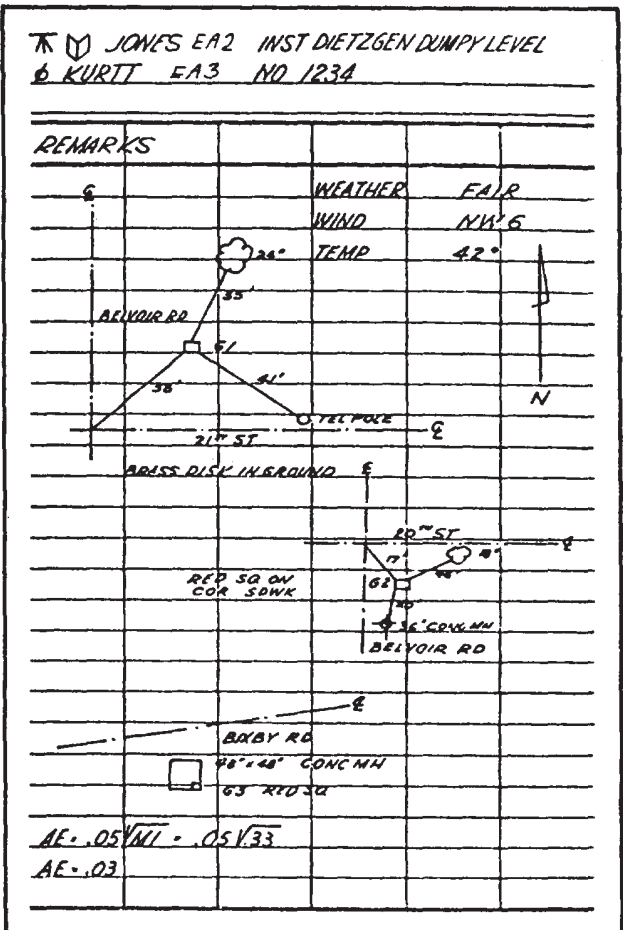 JONES EA2 INST DIETZGEN DUMPY LEVEL
ϕ KURTT EA3 NO 1234
REMARKS
℄ WEATHER FAIR
WIND NW 6
TEMP 42°
24"
35'
BELVOIR RD
61
38'
41'
N
TEL POLE
21ST ST ℄
BRASS DISK IN GROUND
℄
20TH ST ℄
17'
RED SQ ON
COR SDWK
62
20'
36" CONC MH
BELVOIR RD
℄
BIXBY RD
48" x 48" CONC MH
63 RED SQ
AE = .05√MI = .05√.33
AE = .03